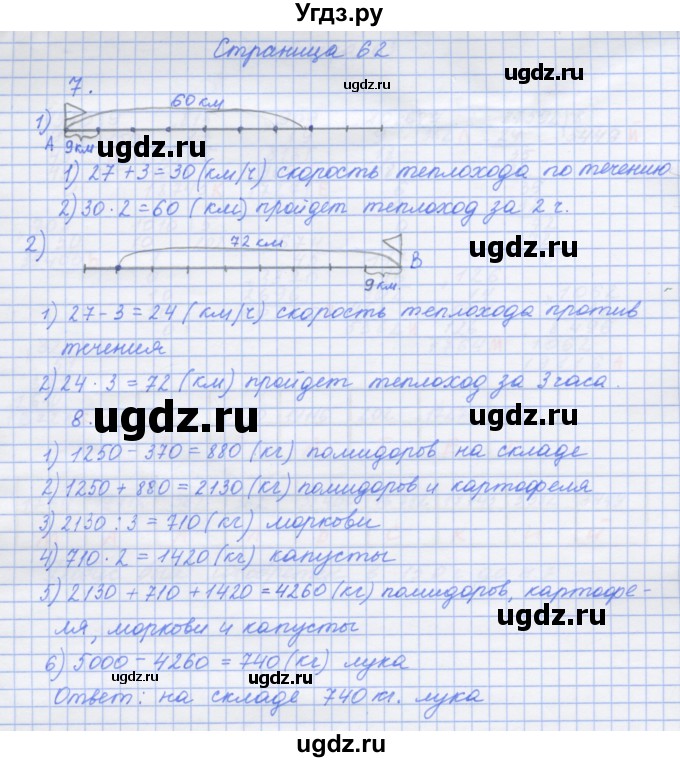 Угдз.ру
Страница 62
ugdz.ru
7.
60 км
1)
ugdz.ru
A 9км
ugdz.ru
1) 27 + 3 = 30 (км/ч) скорость теплохода по течению
2) 30 · 2 = 60 (км) пройдет теплоход за 2 ч.
2)
72 км
B
9км.
1) 27 - 3 = 24 (км/ч) скорость теплохода против
течения
ugdz.ru
2) 24 · 3 = 72 (км) пройдет теплоход за 3 часа.
8.
ugdz.ru
ugdz.ru
1) 1250 - 370 = 880 (кг) помидоров на складе
2) 1250 + 880 = 2130 (кг) помидоров и картофеля
3) 2130 : 3 = 710 (кг) моркови
4) 710 · 2 = 1420 (кг) капусты
5) 2130 + 710 + 1420 = 4260 (кг) помидоров, картофе-
ugdz.ru
ля, моркови и капусты
6) 5000 - 4260 = 740 (кг) лука
ugdz.ru
ugdz.ru
Ответ: на складе 740 кг. лука
ugdz.ru